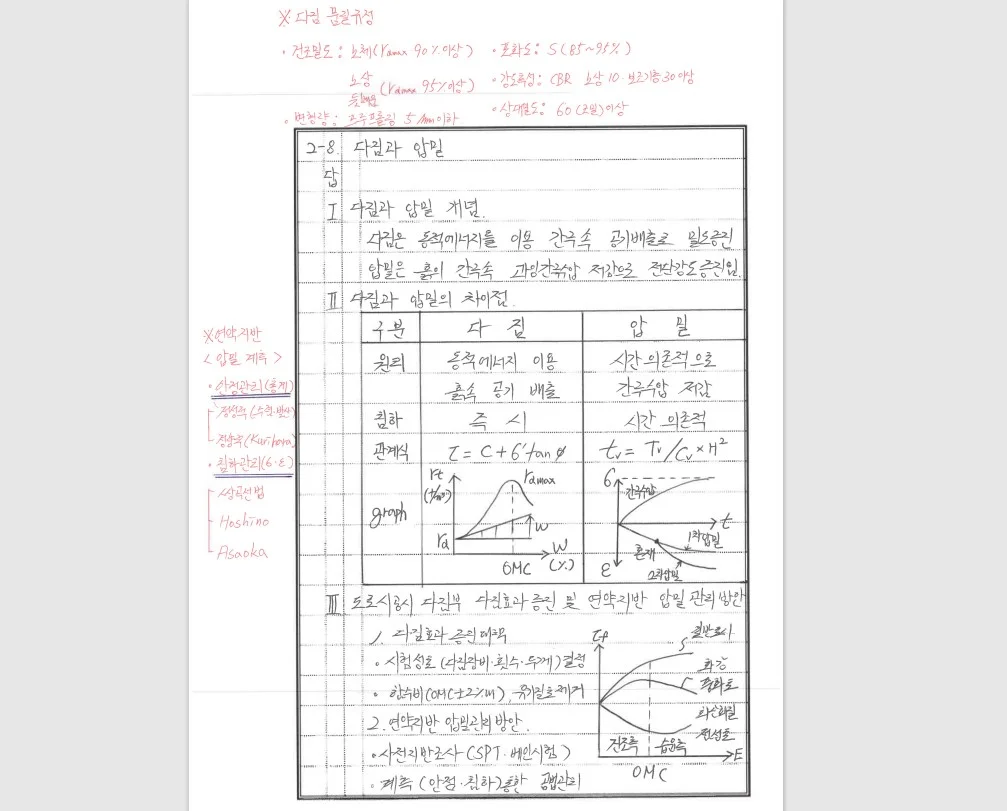 ※ 다짐 품질규정
· 건조밀도 : 노체(γdmax 90% 이상) · 포화도 : S (85~95%)
노상 (γdmax 95% 이상) · 강도특성 : CBR 노상 10 · 보조기층 30 이상
· 변형량 : 프루프롤링 5mm 이하 · 상대밀도 : 60 이상
2-8. 다짐과 압밀
답
I 다짐과 압밀 개념.
다짐은 동적에너지를 이용 간극속 공기배출로 밀도증진
압밀은 흙의 간극속 과잉간극수압 저감으로 전단강도증진임.
II 다짐과 압밀의 차이점.
구분 다 짐 압 밀
원리 동적에너지 이용 시간 의존적으로
흙속 공기 배출 간극수압 저감
침하 즉 시 시간 의존적
관계식 τ = C + σ' tan φ tv = Tv / Cv × H²
graph
γt
(t/m³)
γdmax
γd
W
OMC
W
(%)
σ
간극수압
t
1차압밀
혼재
2차압밀
ε
※ 연약지반
< 압밀 계측 >
· 안정관리(통계)
정성적 (수렴·발산)
정량적 (Kurihara)
· 침하관리(σ·ε)
쌍곡선법
Hoshino
Asaoka
III 도로시공시 다짐부 다짐효과 증진 및 연약지반 압밀 관리방안
1. 다짐효과 증진대책
· 시험성토 (다짐장비·횟수·두께) 결정
· 함수비(OMC±2%내), 유기질토제거
2. 연약지반 압밀관리방안.
· 사전지반조사 (SPT·베인시험)
· 계측 (안정·침하)통한 공법관리
일반토사
화강
풍화토
점성토
건조측
습윤측
E
OMC